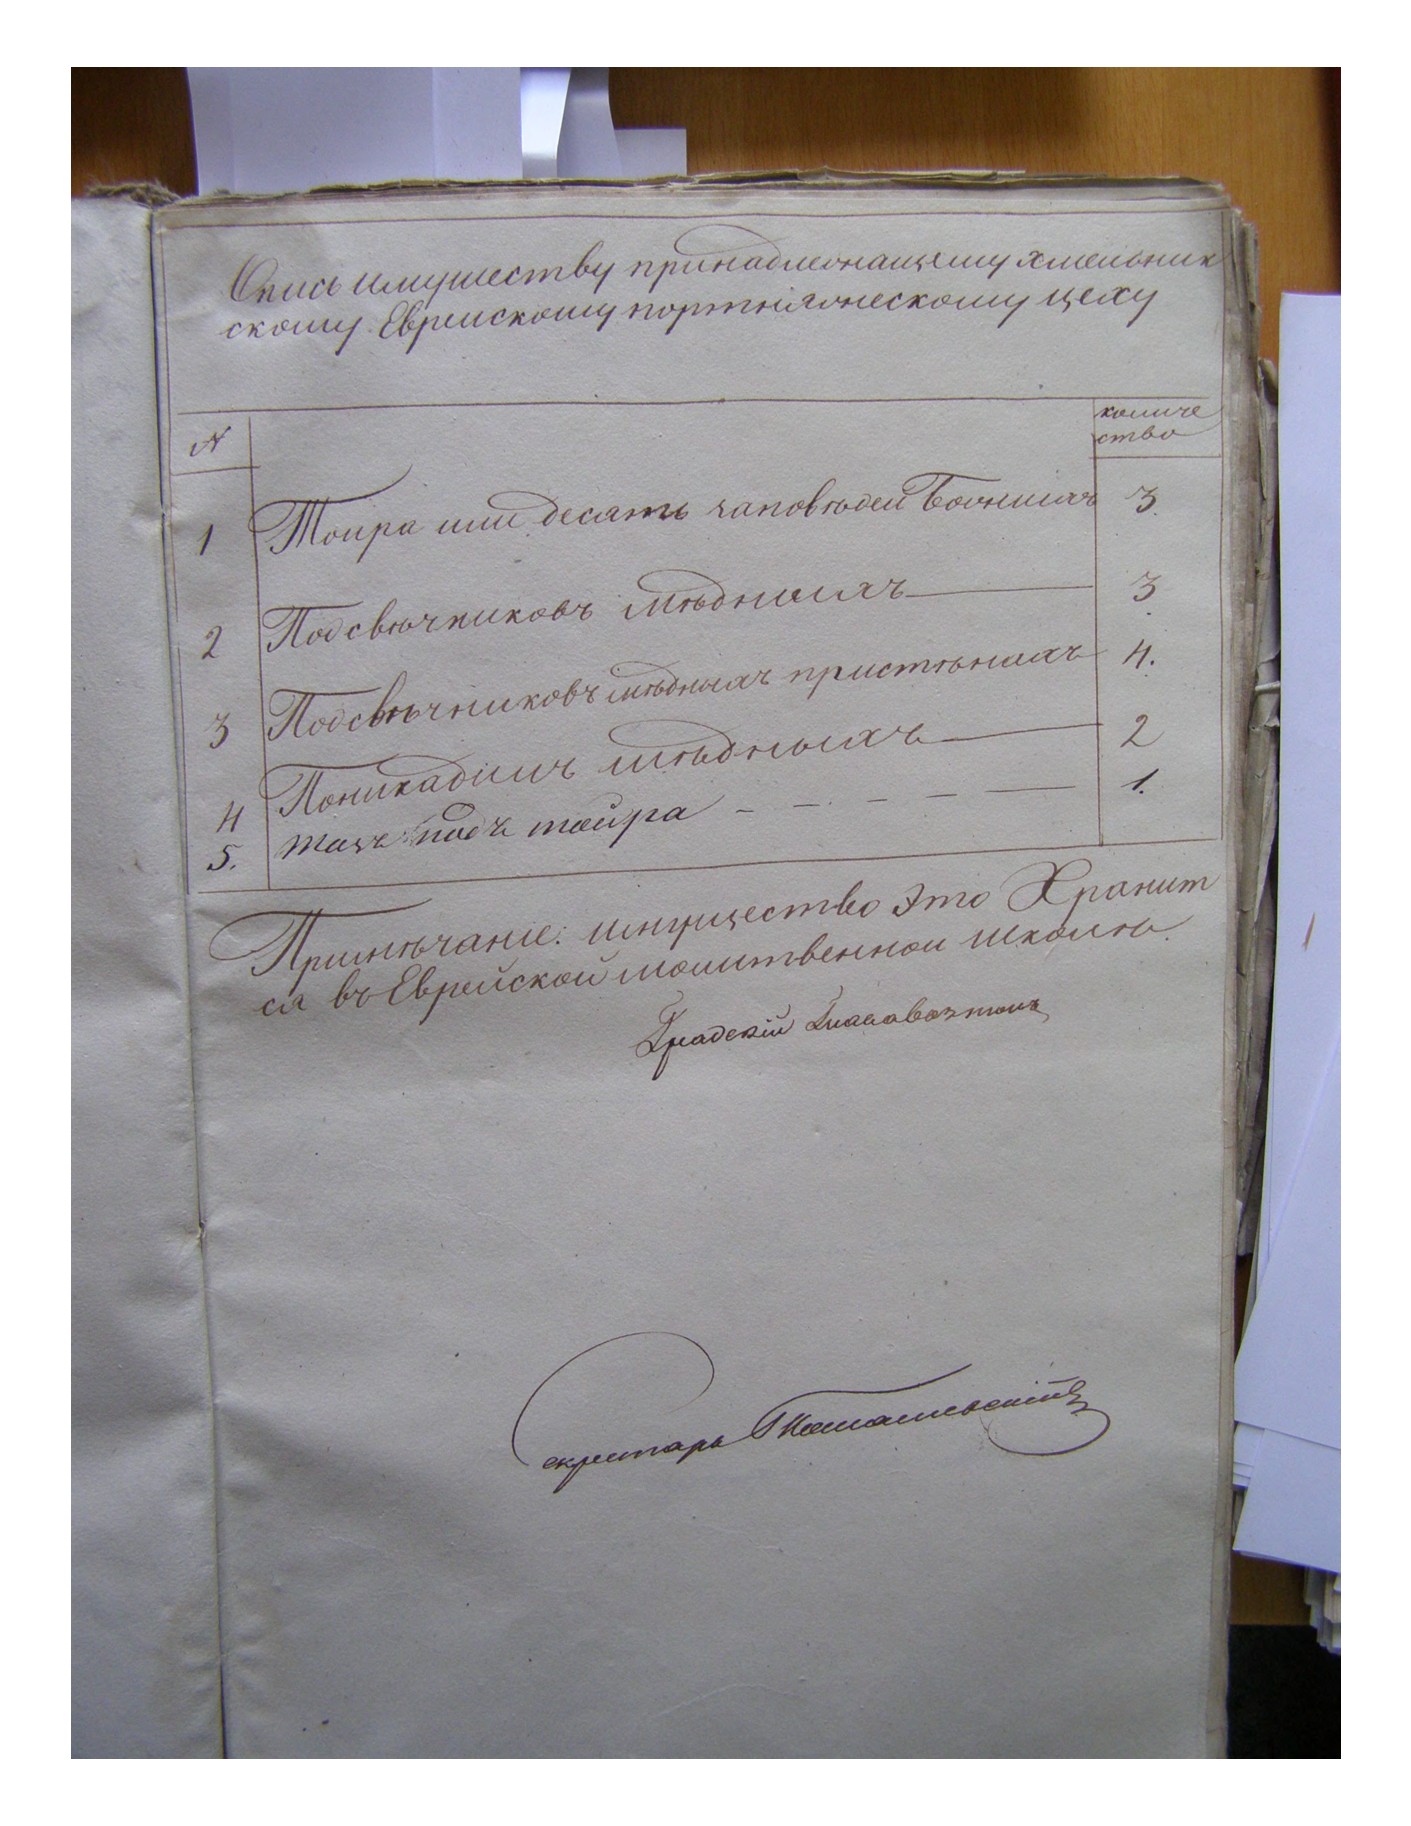 Опись имуществу принадлежащему хмельник
скому Еврейскому портняжескому цеху
N
количе
ство
1 Тоира или десять заповѣдей Божіихъ 3.
2 Подсвѣчниковъ мѣдныхъ 3
3 Подсвѣчниковъ мѣдныхъ пристѣныхъ 4.
4 Поникадилъ мѣдныхъ 2
5. под тойра 1.
Примѣчаніе: имущество это Хранит
ся въ Еврейской молитвенной школѣ.
Градскій
Секретарь